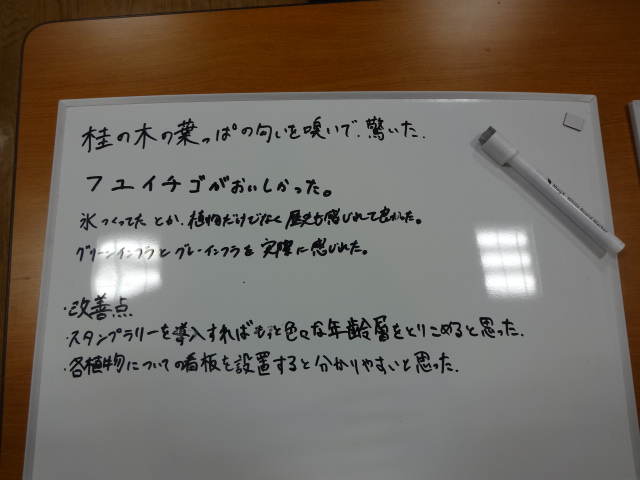 桂の木の葉っぱの匂いを嗅いで、驚いた.
フユイチゴがおいしかった。
氷つくってたとか、植物だけでなく歴史も感じれて良かった。
グリーンインフラとグレーインフラを実際に感じれた。
・改善点
・スタンプラリーを導入すればもっと色々な年齢層をとりこめると思った.
・各植物についての看板を設置すると分かりやすいと思った.